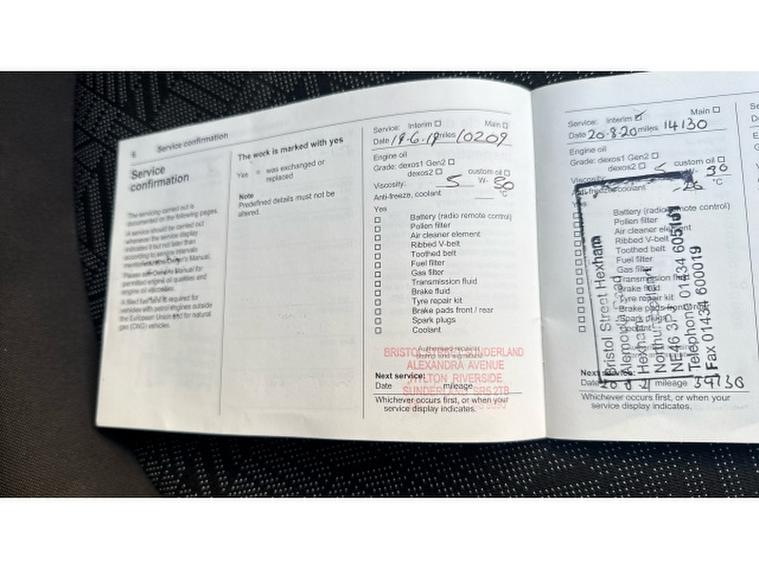 6 Service confirmation
Service
confirmation
The servicing carried out is
documented on the following pages.
A service should be carried out
whenever the service display
indicates it but not later than
according to service intervals
Please see Owner's Manual for
permitted engine oil qualities and
engine oil viscosities.
vehicles with petrol engines outside
the European Union and for natural
gas (CNG) vehicles.
The work is marked with yes
Yes = was exchanged or
replaced
Note
Predefined details must not be
altered.
Service: Interim ☐ Main ☐
Date 19-6-19 miles 10209
Engine oil
Grade: dexos1 Gen2 ☐
dexos2 ☐ custom oil ☐
Viscosity: 5 W- 30
Anti-freeze, coolant °C
Yes
☐ Battery (radio remote control)
☐ Pollen filter
☐ Air cleaner element
☐ Ribbed V-belt
☐ Toothed belt
☐ Fuel filter
☐ Gas filter
☐ Transmission fluid
☐ Brake fluid
☐ Tyre repair kit
☐ Brake pads front / rear
☐ Spark plugs
☐ Coolant
Authorised repairer
stamp and signature
BRISTOL SUNDERLAND
ALEXANDRA AVENUE
HYLTON RIVERSIDE
SUNDERLAND SR5 2TB
Next service:
Date mileage
Whichever occurs first, or when your
service display indicates.
Service: Interim ☑ Main ☐
Date 20-8-20 miles 14130
Engine oil
Grade: dexos1 Gen2 ☐
dexos2 ☐ custom oil ☐
Viscosity: 5 W- 30
Anti-freeze, coolant -26 °C
Battery (radio remote control)
Pollen filter
Air cleaner element
Ribbed V-belt
Toothed belt
Fuel filter
Gas filter
Transmission fluid
Brake fluid
Tyre repair kit
Brake pads front / rear
Spark plugs
Coolant
Bristol Street Hexham
Road
Hexham
NE46 3P
Telephone 01434 605
Fax 01434 600019
Next service:
Date mileage 34130
Whichever occurs first, or when your
service display indicates.